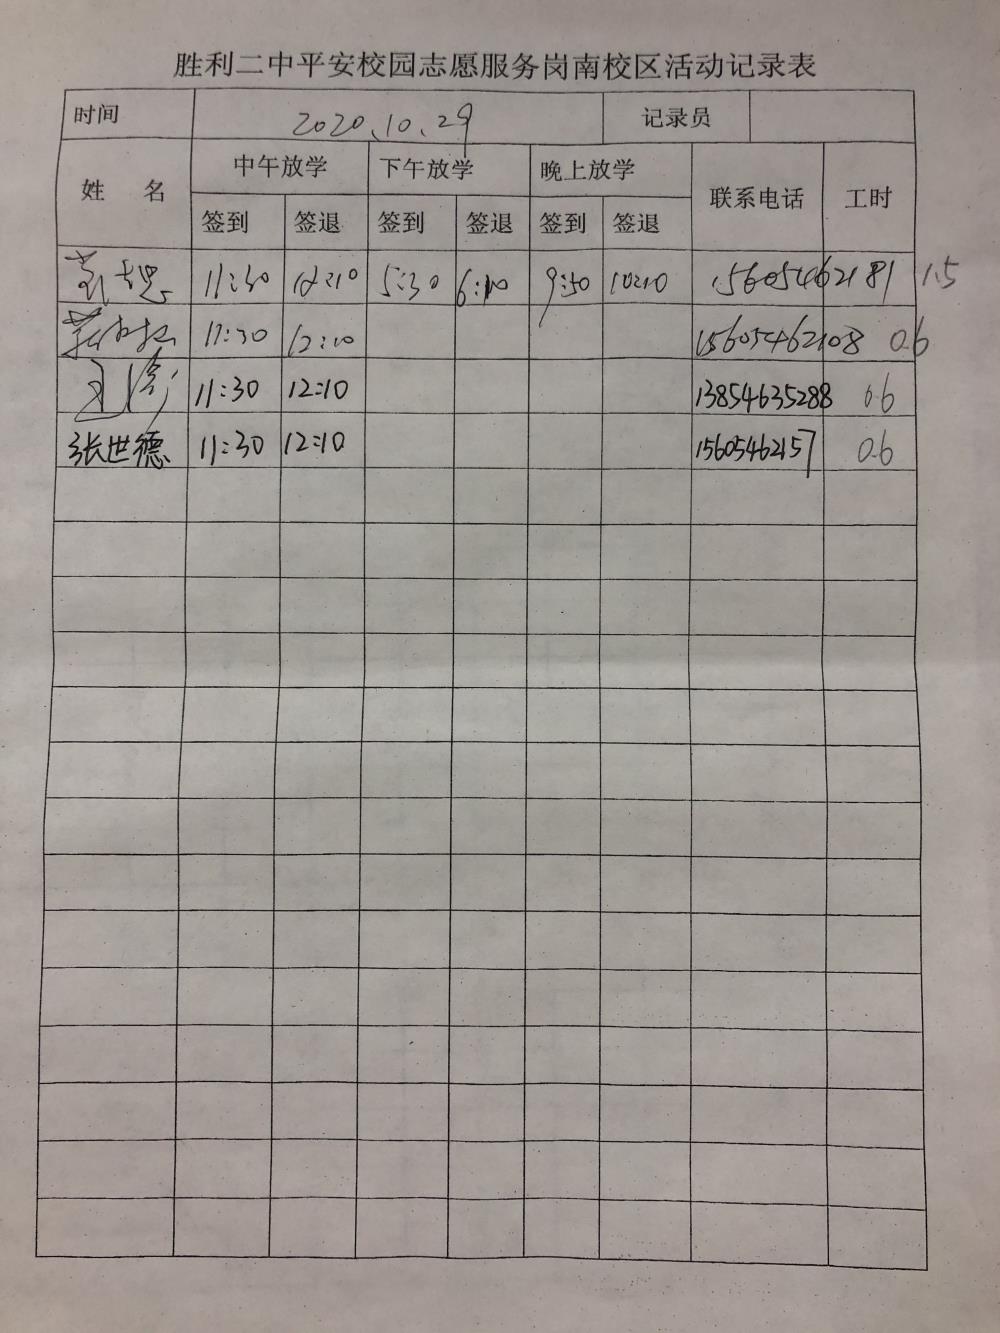 胜利二中平安校园志愿服务岗南校区活动记录表
时间 2020.10.29 记录员
姓 名 中午放学 下午放学 晚上放学 联系电话 工时
签到 签退 签到 签退 签到 签退
11:30 12:10 5:30 6:10 9:50 10:10 15605462181 1.5
11:30 12:10 15605462108 0.6
11:30 12:10 13854635288 0.6
张世德 11:30 12:10 15605462157 0.6